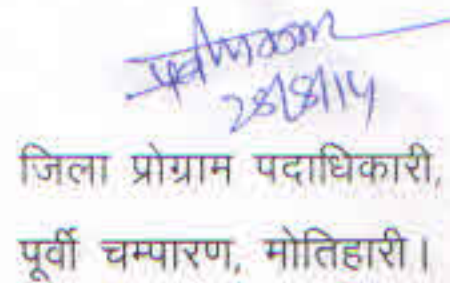 28/8/14
जिला प्रोग्राम पदाधिकारी,
पूर्वी चम्पारण, मोतिहारी।